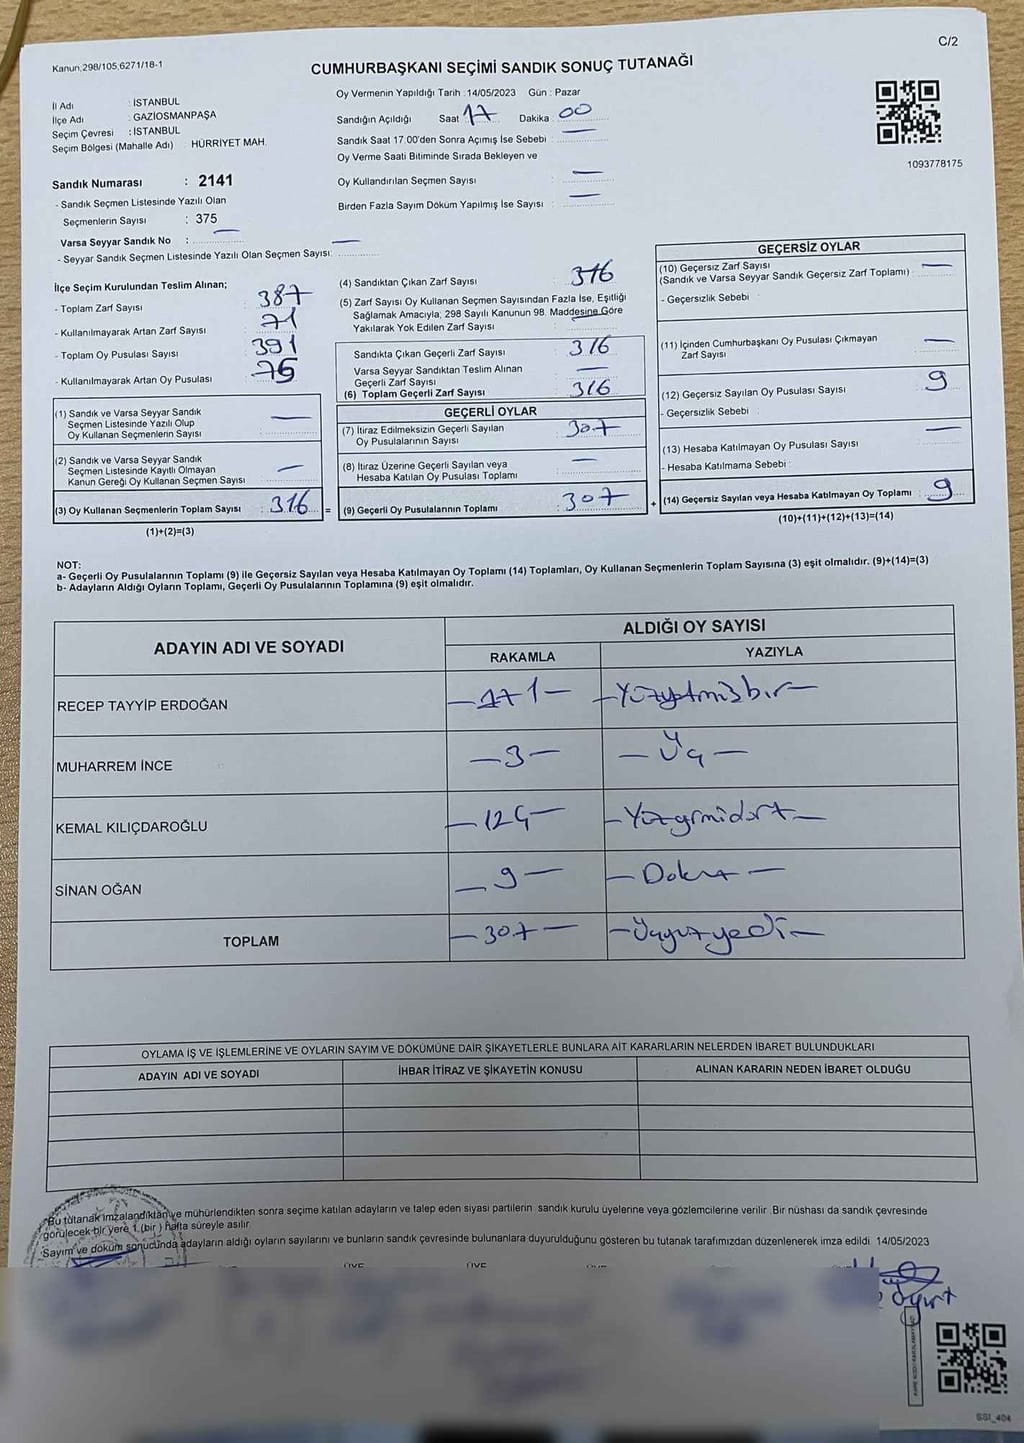 C/2
Kanun:298/105,6271/18-1
CUMHURBAŞKANI SEÇİMİ SANDIK SONUÇ TUTANAĞI
İl Adı : İSTANBUL
İlçe Adı : GAZİOSMANPAŞA
Seçim Çevresi : İSTANBUL
Seçim Bölgesi (Mahalle Adı) : HÜRRİYET MAH.
Sandık Numarası : 2141
- Sandık Seçmen Listesinde Yazılı Olan
Seçmenlerin Sayısı : 375
Varsa Seyyar Sandık No : —
- Seyyar Sandık Seçmen Listesinde Yazılı Olan Seçmen Sayısı: —
Oy Vermenin Yapıldığı Tarih : 14/05/2023 Gün : Pazar
Sandığın Açıldığı Saat 17 Dakika 00
Sandık Saat 17.00'den Sonra Açımış İse Sebebi : —
Oy Verme Saati Bitiminde Sırada Bekleyen ve
Oy Kullandırılan Seçmen Sayısı : —
Birden Fazla Sayım Döküm Yapılmış İse Sayısı : —
1093778175
İlçe Seçim Kurulundan Teslim Alınan;
- Toplam Zarf Sayısı : 387
- Kullanılmayarak Artan Zarf Sayısı : 71
- Toplam Oy Pusulası Sayısı : 391
- Kullanılmayarak Artan Oy Pusulası : 75
(1) Sandık ve Varsa Seyyar Sandık
Seçmen Listesinde Yazılı Olup
Oy Kullanan Seçmenlerin Sayısı : —
(2) Sandık ve Varsa Seyyar Sandık
Seçmen Listesinde Kayıtlı Olmayan
Kanun Gereği Oy Kullanan Seçmen Sayısı : —
(3) Oy Kullanan Seçmenlerin Toplam Sayısı : 316 =
(1)+(2)=(3)
(4) Sandıktan Çıkan Zarf Sayısı : 316
(5) Zarf Sayısı Oy Kullanan Seçmen Sayısından Fazla İse, Eşitliği
Sağlamak Amacıyla; 298 Sayılı Kanunun 98. Maddesine Göre
Yakılarak Yok Edilen Zarf Sayısı : —
Sandıkta Çıkan Geçerli Zarf Sayısı : 316
Varsa Seyyar Sandıktan Teslim Alınan
Geçerli Zarf Sayısı : —
(6) Toplam Geçerli Zarf Sayısı : 316
GEÇERLİ OYLAR
(7) İtiraz Edilmeksizin Geçerli Sayılan
Oy Pusulalarının Sayısı : 307
(8) İtiraz Üzerine Geçerli Sayılan veya
Hesaba Katılan Oy Pusulası Toplamı : —
(9) Geçerli Oy Pusulalarının Toplamı : 307 +
GEÇERSİZ OYLAR
(10) Geçersiz Zarf Sayısı
(Sandık ve Varsa Seyyar Sandık Geçersiz Zarf Toplamı) : —
- Geçersizlik Sebebi :
(11) İçinden Cumhurbaşkanı Oy Pusulası Çıkmayan
Zarf Sayısı : —
(12) Geçersiz Sayılan Oy Pusulası Sayısı : 9
- Geçersizlik Sebebi :
(13) Hesaba Katılmayan Oy Pusulası Sayısı : —
- Hesaba Katılmama Sebebi :
(14) Geçersiz Sayılan veya Hesaba Katılmayan Oy Toplamı : 9
(10)+(11)+(12)+(13)=(14)
NOT:
a- Geçerli Oy Pusulalarının Toplamı (9) ile Geçersiz Sayılan veya Hesaba Katılmayan Oy Toplamı (14) Toplamları, Oy Kullanan Seçmenlerin Toplam Sayısına (3) eşit olmalıdır. (9)+(14)=(3)
b- Adayların Aldığı Oyların Toplamı, Geçerli Oy Pusulalarının Toplamına (9) eşit olmalıdır.
ADAYIN ADI VE SOYADI ALDIĞI OY SAYISI
RAKAMLA YAZIYLA
RECEP TAYYİP ERDOĞAN —171— —Yüzyetmişbir—
MUHARREM İNCE —3— —Üç—
KEMAL KILIÇDAROĞLU —124— —Yüzyirmidört—
SİNAN OĞAN —9— —Dokuz—
TOPLAM —307— —Üçyüzyedi—
OYLAMA İŞ VE İŞLEMLERİNE VE OYLARIN SAYIM VE DÖKÜMÜNE DAİR ŞİKAYETLERLE BUNLARA AİT KARARLARIN NELERDEN İBARET BULUNDUKLARI
ADAYIN ADI VE SOYADI İHBAR İTİRAZ VE ŞİKAYETİN KONUSU ALINAN KARARIN NEDEN İBARET OLDUĞU
Bu tutanak imzalandıktan ve mühürlendikten sonra seçime katılan adayların ve talep eden siyasi partilerin sandık kurulu üyelerine veya gözlemcilerine verilir. Bir nüshası da sandık çevresinde
görülecek bir yere 1 (bir) hafta süreyle asılır.
Sayım ve döküm sonucunda adayların aldığı oyların sayılarını ve bunların sandık çevresinde bulunanlara duyurulduğunu gösteren bu tutanak tarafımızdan düzenlenerek imza edildi. 14/05/2023
ÜYE ÜYE
SSI_404